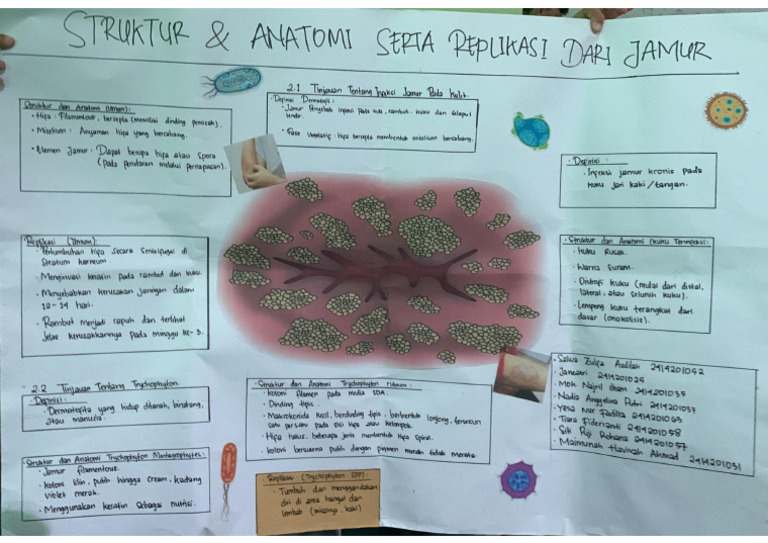 STRUKTUR & ANATOMI SERTA REPLIKASI DARI JAMUR
Struktur dan Anatomi (Umum):
• Hifa : Filamentour, bersepta (memiliki dinding pemisah).
• Miselium : Anyaman hifa yang bercabang.
• Elemen Jamur : Dapat berupa hifa atau spora
(pada pendaran melalui pernapasan).
2.1 Tinjauan Tentang Infeksi Jamur Pada Kulit.
• Definisi Dermatofit :
• Jamur Penyebab infeksi pada kulit, rambut, kuku dan selaput
lendir.
• Fase Vegetatif : hifa bersepta membentuk miselium bercabang.
• Definisi :
• Infeksi jamur kronis pada
kuku jari kaki / tangan.
Replikasi (Umum):
• Pertumbuhan hifa secara sentrifugal di
Stratum korneum.
• Menginvasi keratin pada rambut dan kuku.
• Mengebabkan kerusakan jaringan dalam
10 - 14 hari.
• Rambut menjadi rapuh dan terlihat
jelas kerusakkannya pada minggu ke- 3.
• Struktur dan Anatomi (kuku Terinfeksi) :
• kuku Rusak.
• Warna suram.
• Distrofi kuku (mulai dari distal,
lateral, atau seluruh kuku).
• Lempeng kuku terangkat dari
dasar (onokolisis).
2.2 Tinjauan Tentang Trychophyton
• Definisi :
• Dermatofita yang hidup ditanah, binatang,
atau manusia.
• Struktur dan Anatomi Trychophyton Mentagrophytes:
• Jamur filamentour.
• koloni klin, putih hingga cream, kadang
violet merah.
• Menggunakan keratin sebagai nutrisi.
• Struktur dan Anatomi Trychophyton rubrum :
• koloni filamen pada media SDA.
• Dinding tipis.
• Makrokonidia kecil, berdinding tipis, berbentuk lonjong, tersusun
satu persatu pada sisi hifa atau kelompok.
• Hifa halus, beberapa jenis membentuk hifa spiral.
• koloni berwarna putih dengan pigmen merah tidak merata.
• Replikasi (Trychophyton SPP) :
• Tumbuh dan menggandakan
diri di area hangat dan
lembab (misalnya, kaki)
• Salwa Zulfa Aadilah 2414201042
• Jancatri 2414201026
• Moh Najril Ilham 2414201035
• Nadia Anggelina Putri 2414201037
• Yasa Nur Fadilla 2414201063
• Tiara Fiderianti 2414201058
• Siti Puji Rohana 2414201057
• Maimunah Havivah Ahmad 2414201031